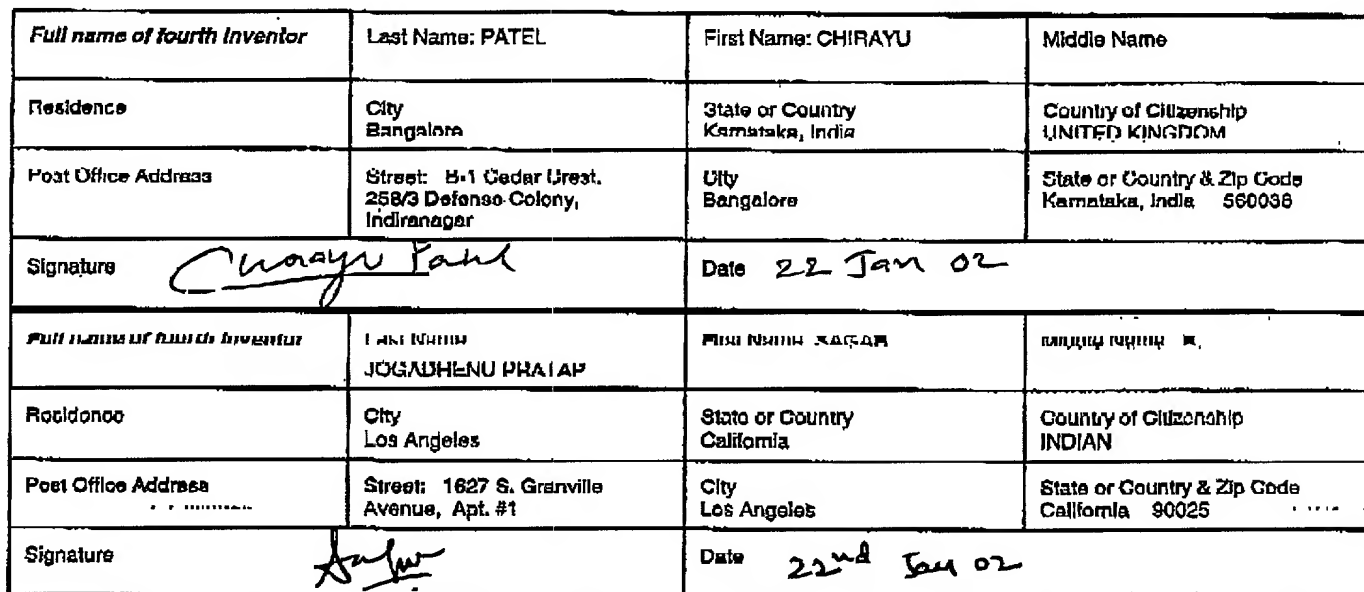 Full name of fourth Inventor
Last Name: PATEL
First Name: CHIRAYU
Middle Name
Residence
City
Bangalore
State or Country
Karnataka, India
Country of Citizenship
UNITED KINGDOM
Post Office Address
Street: B-1 Cedar Crest,
258/3 Defense Colony,
Indiranagar
City
Bangalore
State or Country & Zip Code
Karnataka, India 560038
Signature
Chirayu Patel
Date 22 Jan 02
Full name of fourth Inventor
Last Name
JOGADHENU PRATAP
First Name SAGAR
Middle Name
Residence
City
Los Angeles
State or Country
California
Country of Citizenship
INDIAN
Post Office Address
Street: 1627 S. Granville
Avenue, Apt. #1
City
Los Angeles
State or Country & Zip Code
California 90025
Signature
Date 22nd Jan 02